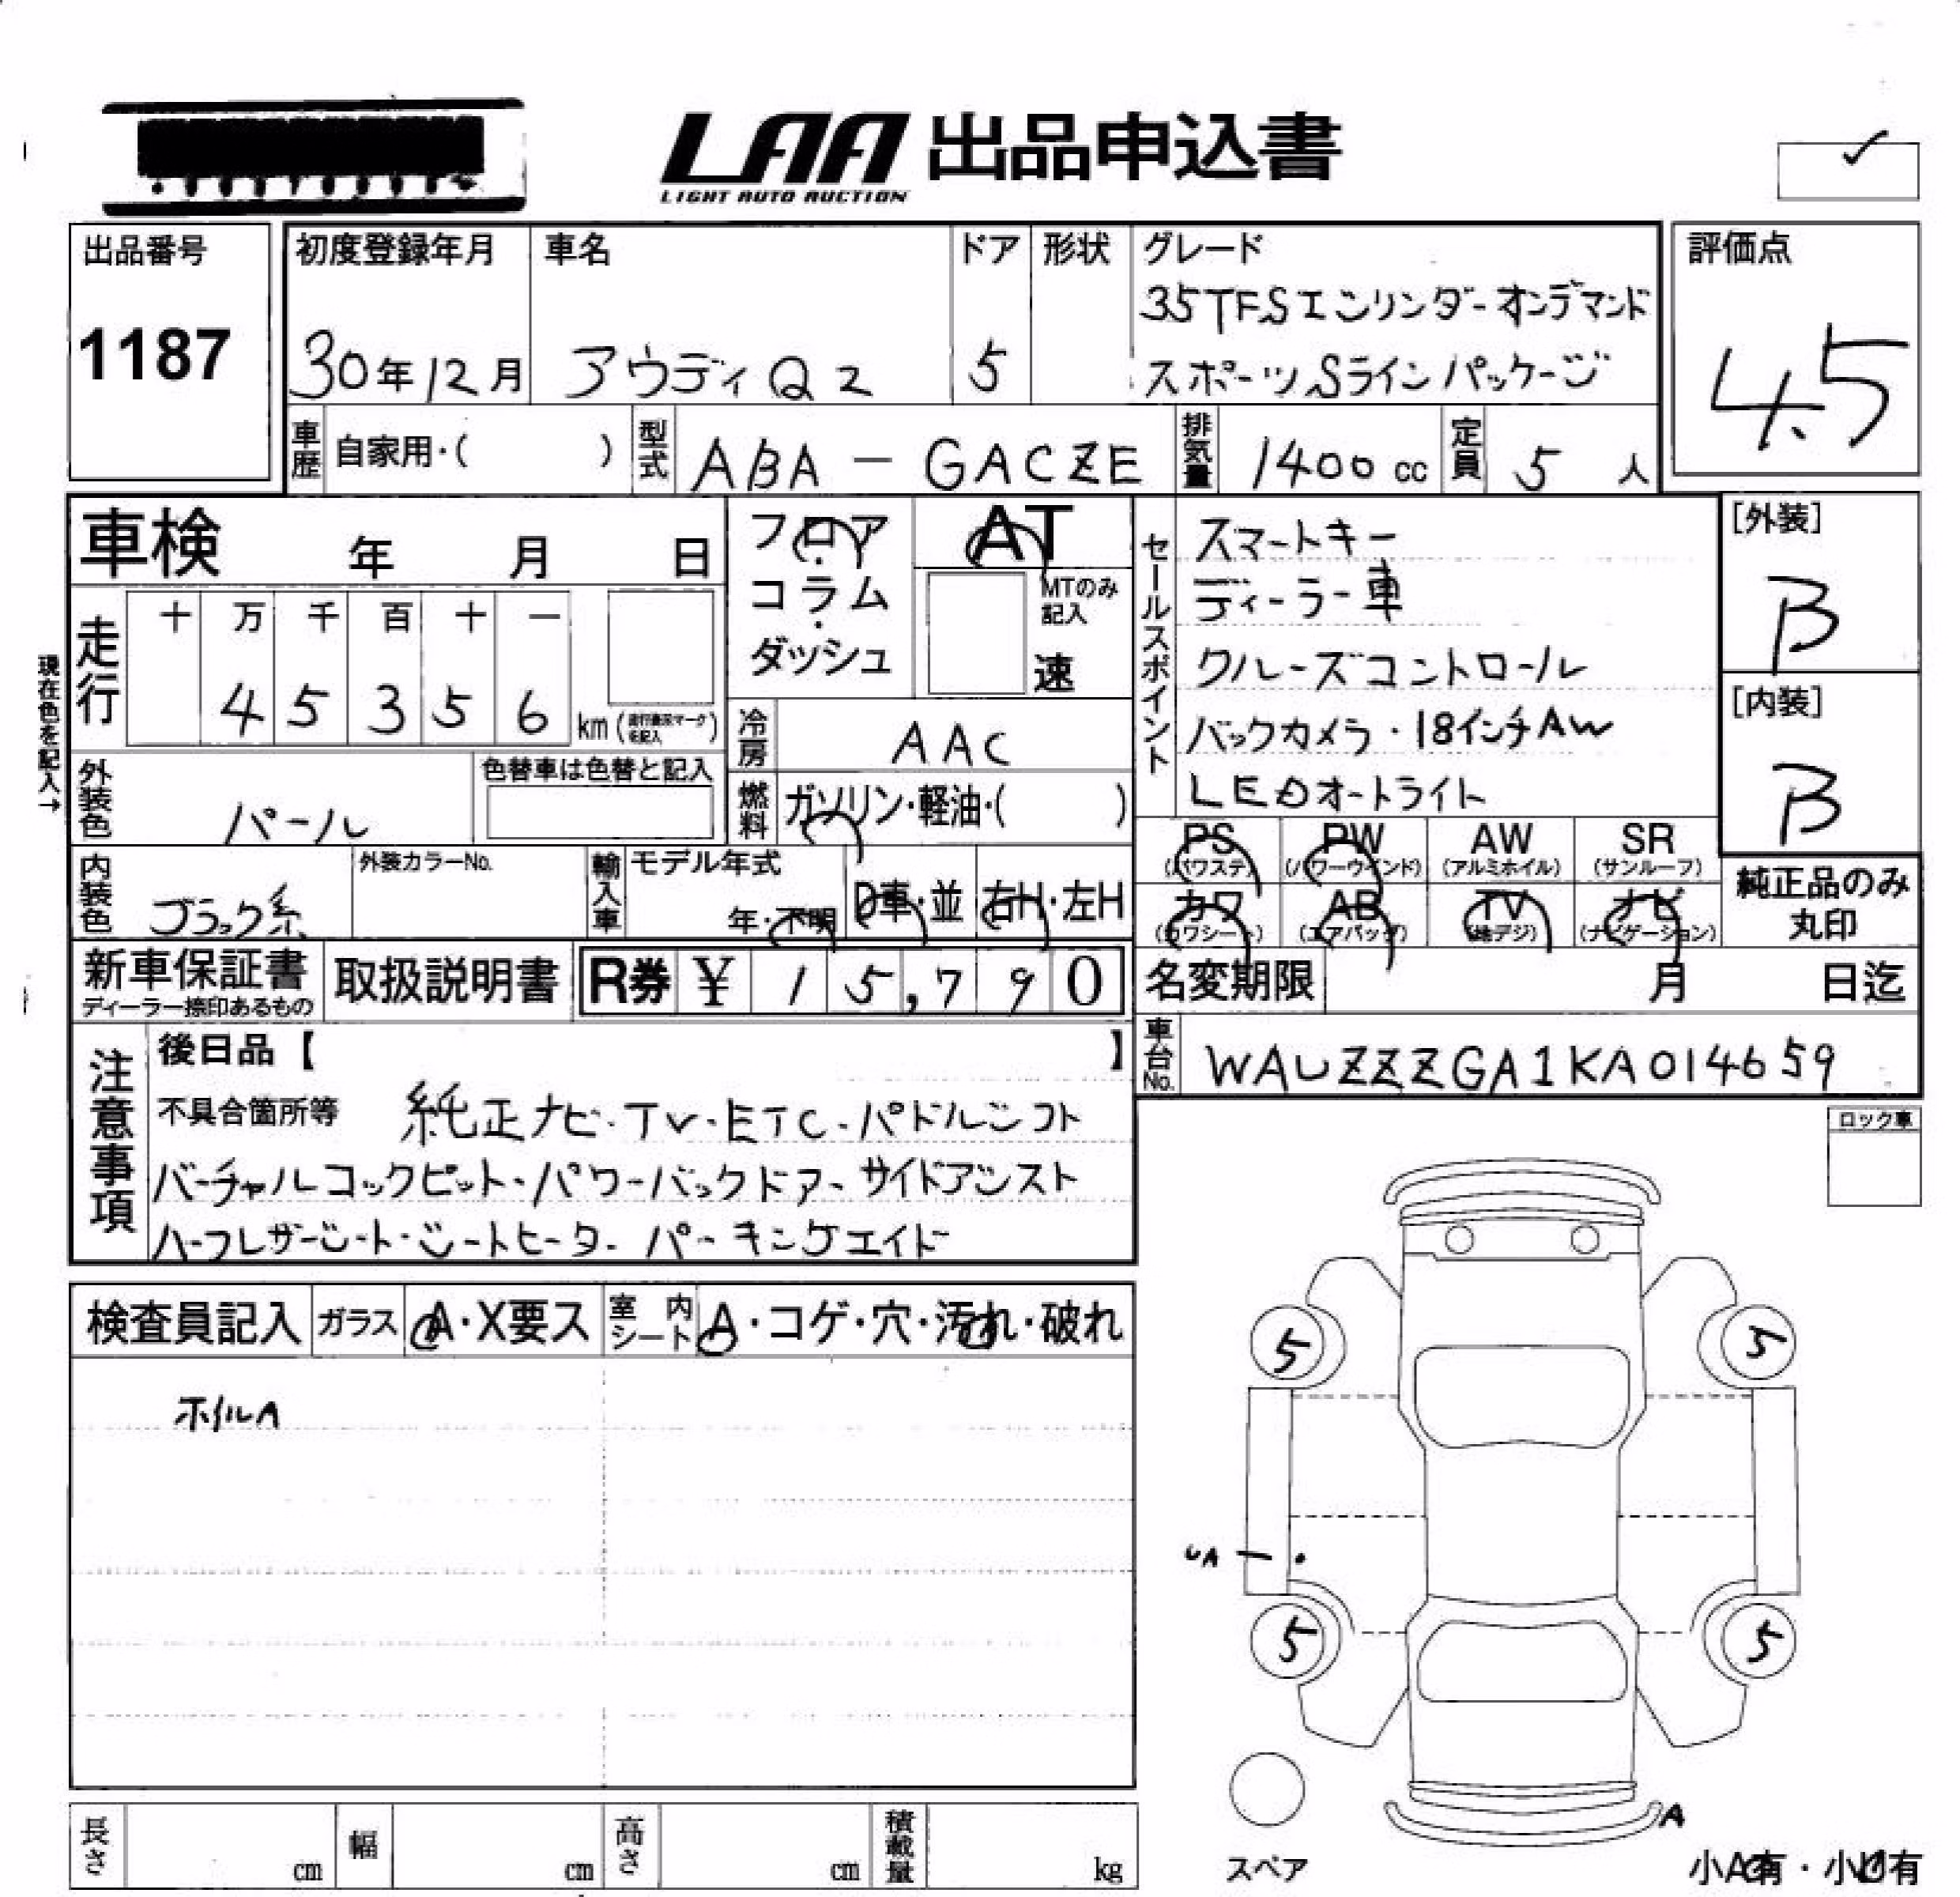 LAA 出品申込書
LIGHT AUTO AUCTION
出品番号
1187
初度登録年月
30年12月
車名
アウディQ2
ドア
5
形状
グレード
35TFSIシリンダーオンデマンド
スポーツSラインパッケージ
評価点
4.5
車歴
自家用・( )
型式
ABA-GACZE
排気量
1400cc
定員
5人
車検 年 月 日
現在色を記入→
走行
十 万 千 百 十 一
4 5 3 5 6
km
フロア・コラム・ダッシュ
AT
MTのみ記入
速
冷房
AAC
燃料
ガソリン・軽油・( )
外装色
パール
色替車は色替と記入
内装色
ブラック系
外装カラーNo.
輸入車
モデル年式
年・不明
D車・並
右H・左H
セールスポイント
スマートキー
ディーラー車
クルーズコントロール
バックカメラ・18インチAW
LEDオートライト
[外装]
B
[内装]
B
PS
(パワステ)
PW
(パワーウインド)
AW
(アルミホイル)
SR
(サンルーフ)
カワ
(カワシート)
AB
(エアバッグ)
TV
(地デジ)
ナビ
(ナビゲーション)
純正品のみ丸印
新車保証書
ディーラー捺印あるもの
取扱説明書
R券 ¥ 15,790
名変期限 月 日迄
車台No.
WAUZZZGA1KA014659
注意事項
後日品【 】
不具合箇所等
純正ナビ・TV・ETC・パドルシフト
バーチャルコックピット・パワーバックドア・サイドアシスト
ハーフレザーシート・シートヒーター・パーキングエイド
ロック車
検査員記入
ガラス
A・X要ス
室内シート
A・コゲ・穴・汚れ・破れ
ホイルA
5
5
UA
5
5
A
スペア
小A有・小U有
長さ cm
幅 cm
高さ cm
積載量 kg